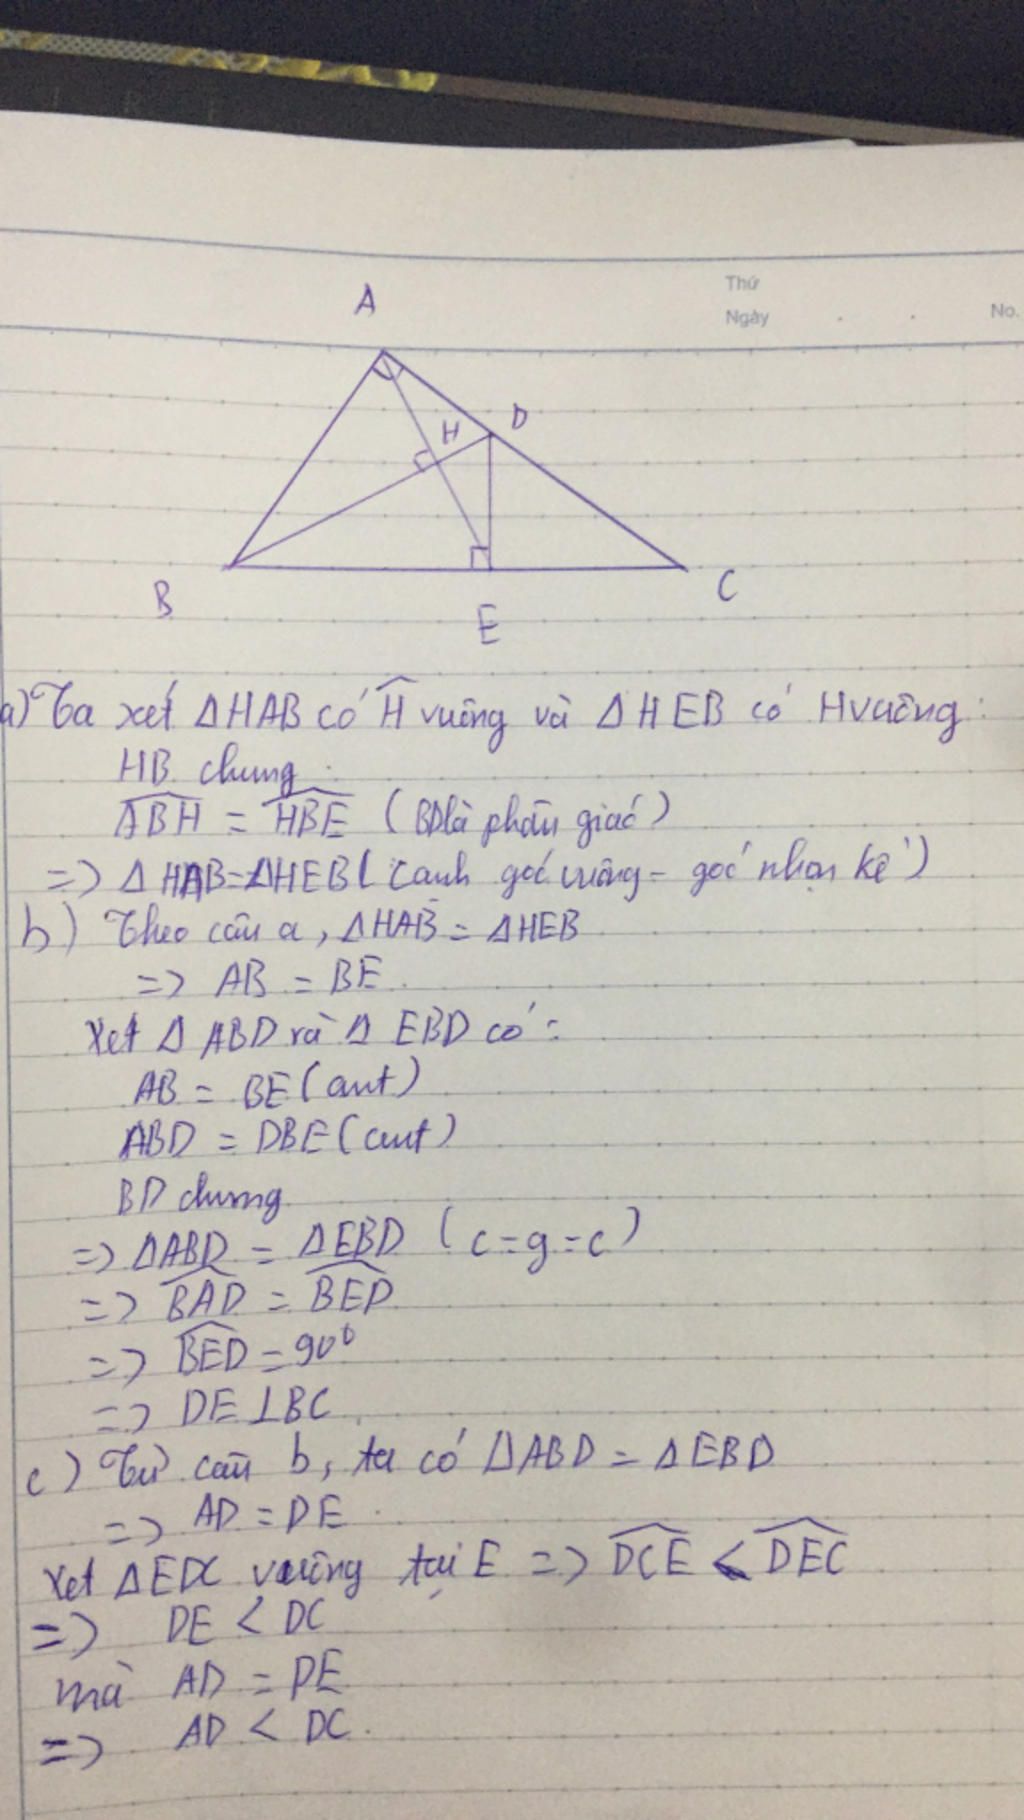 Thứ
Ngày
No.
A
D
H
B
C
E
a) Ta xét ΔHAB có Ĥ vuông và ΔHEB có H vuông:
HB chung
ABH = HBE (BD là phân giác)
=> ΔHAB = ΔHEB (canh góc vuông - góc nhọn kề)
b) Theo câu a, ΔHAB = ΔHEB
=> AB = BE
Xét Δ ABD và Δ EBD có:
AB = BE (cmt)
ABD = DBE (cmt)
BD chung
=> ΔABD = ΔEBD (c=g=c)
=> BAD = BED
=> BED = 90°
=> DE ⊥ BC
c) Từ câu b, ta có ΔABD = ΔEBD
=> AD = DE
Xét ΔEDC vuông tại E => DCE < DEC
=> DE < DC
mà AD = DE
=> AD < DC.